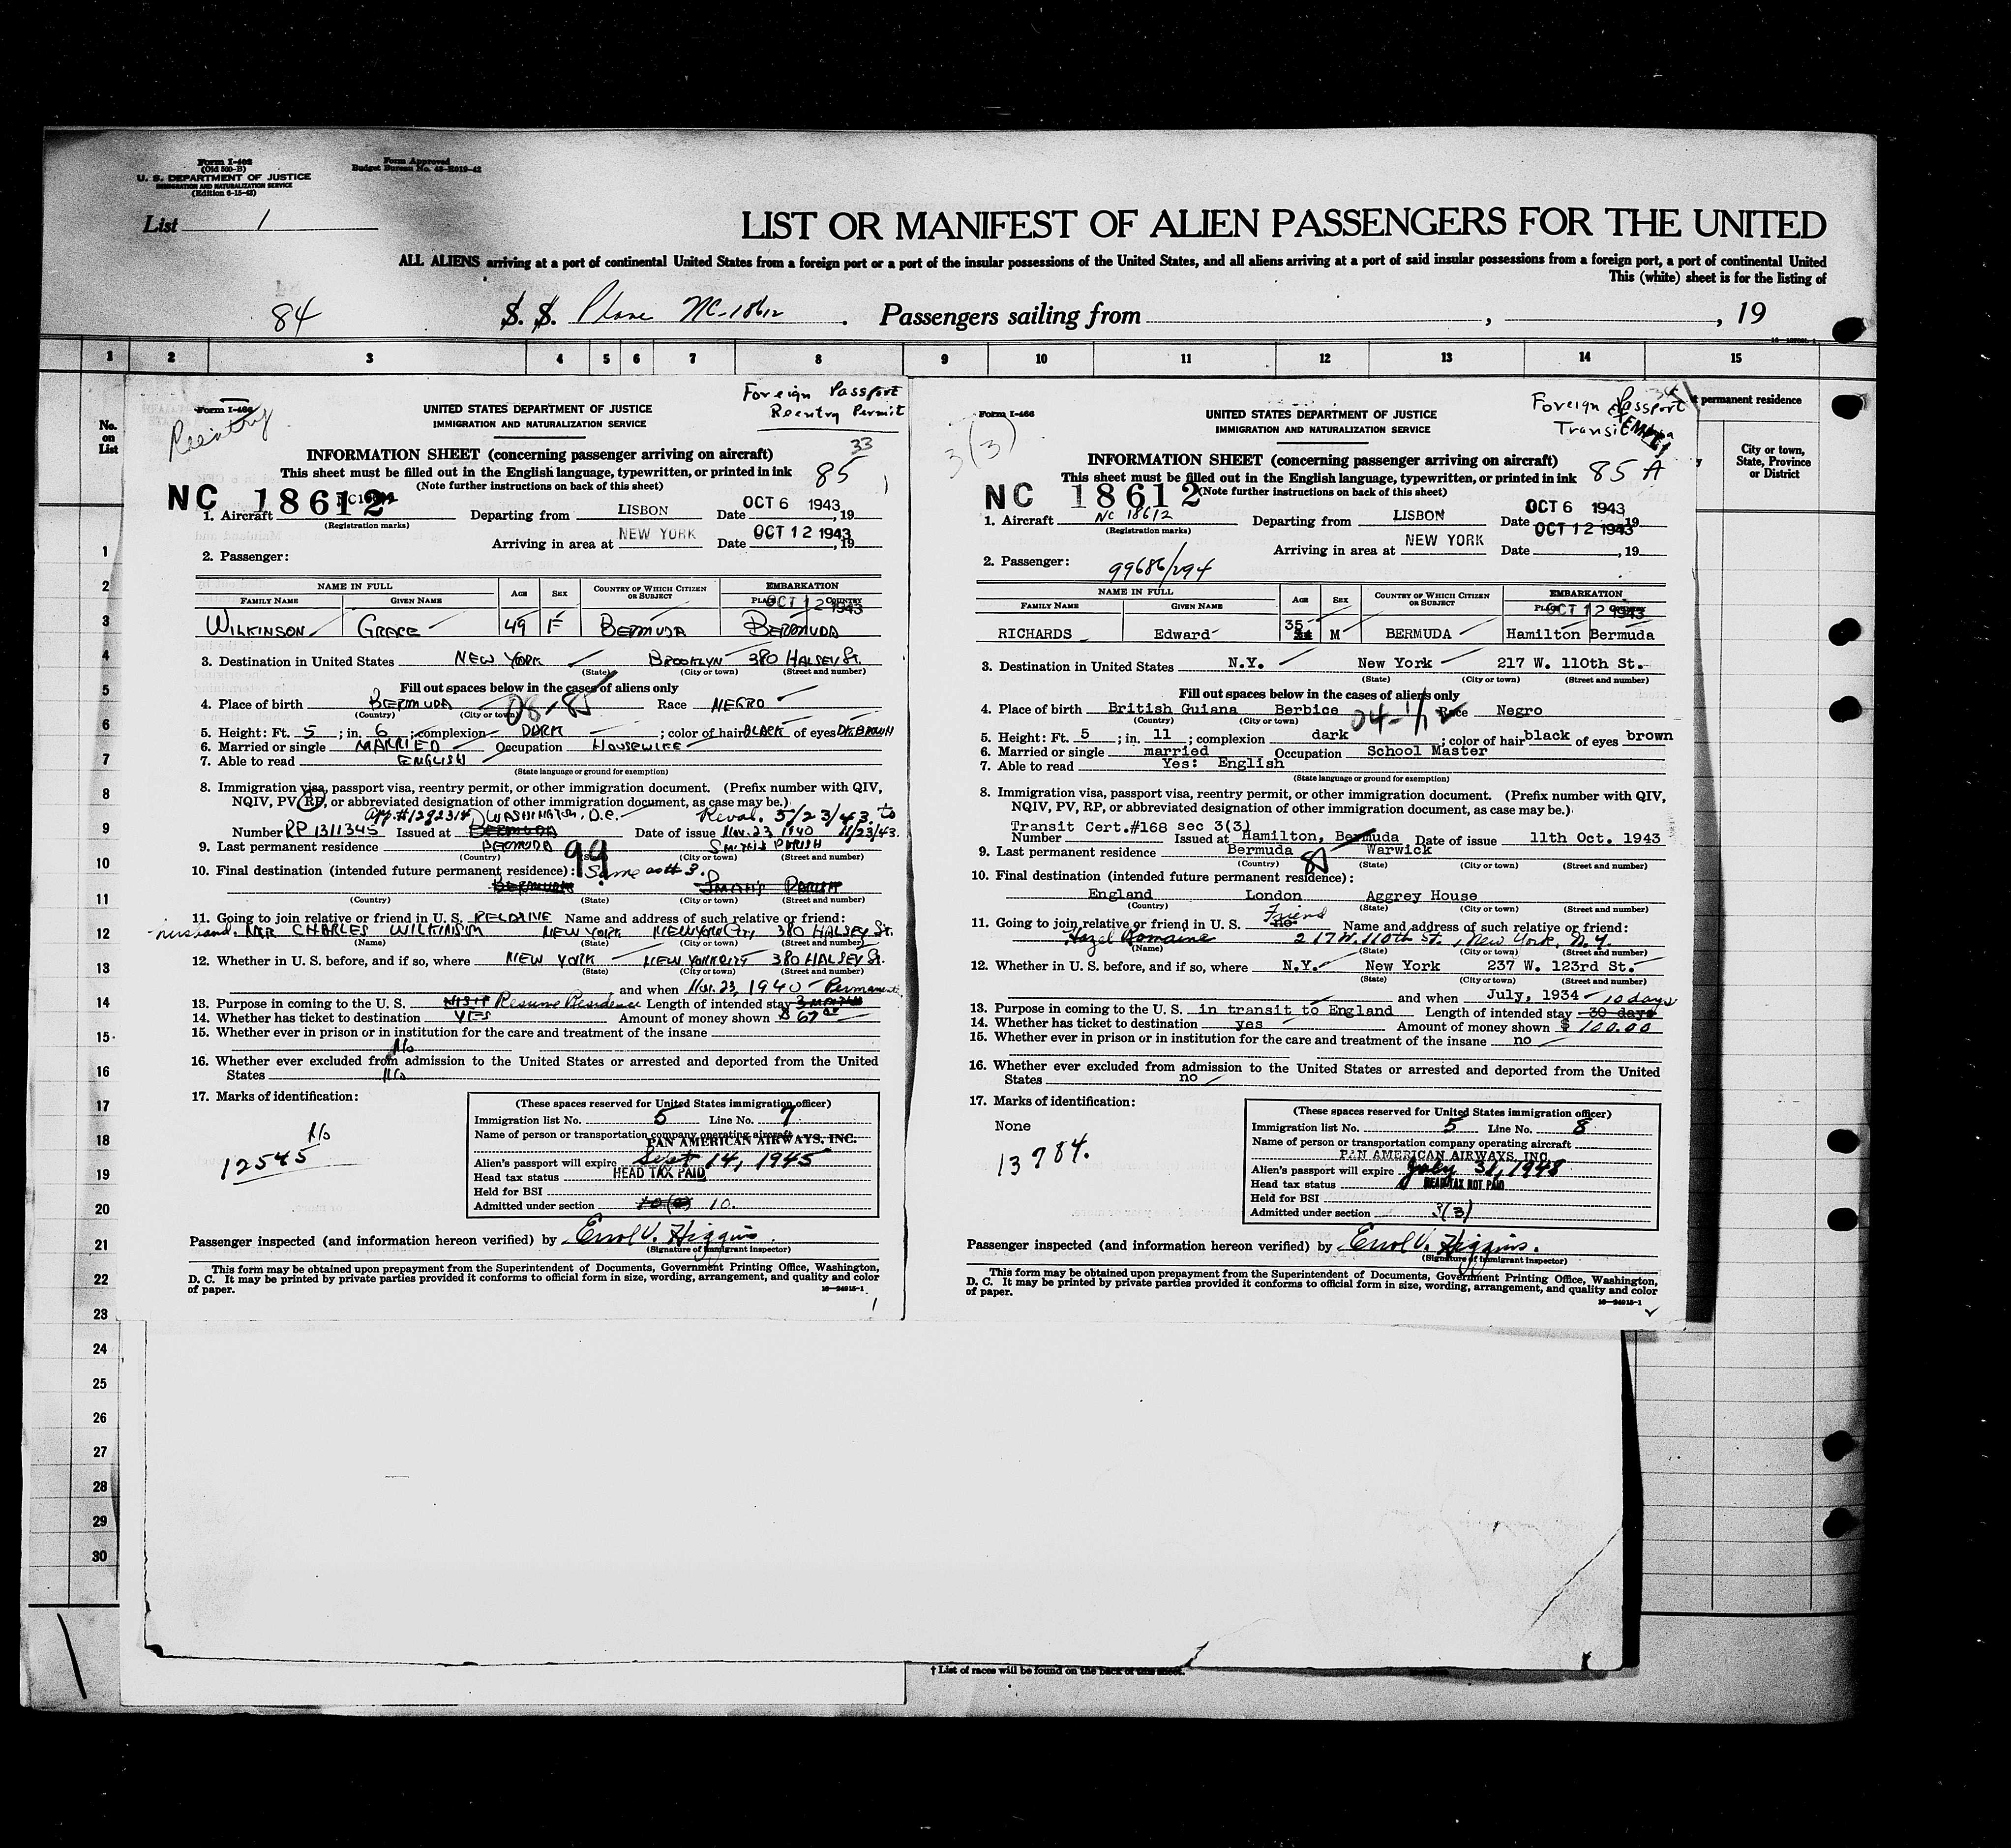 Form I-402
(Old 500-B)
U. S. DEPARTMENT OF JUSTICE
IMMIGRATION AND NATURALIZATION SERVICE
(Edition 6-15-43)
Form Approved
Budget Bureau No. 43-R019-42
List 1
LIST OR MANIFEST OF ALIEN PASSENGERS FOR THE UNITED
ALL ALIENS arriving at a port of continental United States from a foreign port or a port of the insular possessions of the United States, and all aliens arriving at a port of said insular possessions from a foreign port, a port of continental United
This (white) sheet is for the listing of
84 S. S. Plane NC-18612. Passengers sailing from , , 19
1 2 3 4 5 6 7 8 9 10 11 12 13 14 15
No. on List
permanent residence
City or town, State, Province or District
1
2
3
4
5
6
7
8
9
10
11
12
13
14
15
16
17
18
19
20
21
22
23
24
25
26
27
28
29
30
Form I-466
Reentry
UNITED STATES DEPARTMENT OF JUSTICE
IMMIGRATION AND NATURALIZATION SERVICE
Foreign Passport
Reentry Permit
33
INFORMATION SHEET (concerning passenger arriving on aircraft)
This sheet must be filled out in the English language, typewritten, or printed in ink 85
(Note further instructions on back of this sheet)
NC 18612
1. Aircraft Departing from LISBON Date OCT 6 1943, 19
(Registration marks)
Arriving in area at NEW YORK Date OCT 12 1943, 19
2. Passenger:
NAME IN FULL AGE SEX COUNTRY OF WHICH CITIZEN OR SUBJECT EMBARKATION
FAMILY NAME GIVEN NAME PLACE COUNTRY
OCT 12 1943
WILKINSON GRACE 49 F BERMUDA BERMUDA
3. Destination in United States NEW YORK BROOKLYN 380 HALSEY St.
(State) (City or town) (Street and number)
Fill out spaces below in the cases of aliens only
4. Place of birth BERMUDA 08-85 Race NEGRO
(Country) (City or town)
5. Height: Ft. 5; in. 6; complexion DARK; color of hair BLACK of eyes DK BROWN
6. Married or single MARRIED Occupation HOUSEWIFE
7. Able to read ENGLISH
(State language or ground for exemption)
8. Immigration visa, passport visa, reentry permit, or other immigration document. (Prefix number with QIV,
NQIV, PV, RP, or abbreviated designation of other immigration document, as case may be.)
App. #1292314 WASHINGTON, D.C. Reval. 5/23/43 to
Number RP 1311345 Issued at BERMUDA Date of issue Nov. 23 1940 11/23/43.
9. Last permanent residence BERMUDA SMITH'S PARISH
(Country) (State) (City or town) (Street and number)
99
10. Final destination (intended future permanent residence): Same as #3.
BERMUDA SMITH'S PARISH
(Country) (State) (City or town) (Street and number)
11. Going to join relative or friend in U. S. RELATIVE Name and address of such relative or friend:
husband. MR CHARLES WILKINSON NEW YORK NEW YORK City 380 HALSEY St.
(Name) (State) (City or town) (Street and number)
12. Whether in U. S. before, and if so, where NEW YORK NEW YORK CITY 380 HALSEY St.
(State) (City or town) (Street and number)
and when Nov. 23, 1940 - Permanent
13. Purpose in coming to the U. S. VISIT Resume Residence Length of intended stay 3 MONTHS
14. Whether has ticket to destination YES Amount of money shown $67.00
15. Whether ever in prison or in institution for the care and treatment of the insane
No
16. Whether ever excluded from admission to the United States or arrested and deported from the United
States No
17. Marks of identification:
No
12545
(These spaces reserved for United States immigration officer)
Immigration list No. 5 Line No. 7
Name of person or transportation company operating aircraft
PAN AMERICAN AIRWAYS, INC.
Alien's passport will expire Sept 14, 1945
Head tax status HEAD TAX PAID
Held for BSI
Admitted under section 10.
Passenger inspected (and information hereon verified) by Errol V. Higgins.
(Signature of immigrant inspector)
This form may be obtained upon prepayment from the Superintendent of Documents, Government Printing Office, Washington,
D. C. It may be printed by private parties provided it conforms to official form in size, wording, arrangement, and quality and color
of paper.
16—24915-1
Form I-466
3(3)
UNITED STATES DEPARTMENT OF JUSTICE
IMMIGRATION AND NATURALIZATION SERVICE
34
Foreign Passport
Transit
INFORMATION SHEET (concerning passenger arriving on aircraft)
This sheet must be filled out in the English language, typewritten, or printed in ink 85 A
(Note further instructions on back of this sheet)
NC 18612
1. Aircraft NC 18612 Departing from LISBON Date OCT 6 1943, 19
(Registration marks)
Arriving in area at NEW YORK Date OCT 12 1943, 19
2. Passenger: 99686/294
NAME IN FULL AGE SEX COUNTRY OF WHICH CITIZEN OR SUBJECT EMBARKATION
FAMILY NAME GIVEN NAME PLACE COUNTRY
OCT 12 1943
RICHARDS Edward 35 M BERMUDA Hamilton Bermuda
3. Destination in United States N.Y. New York 217 W. 110th St.
(State) (City or town) (Street and number)
Fill out spaces below in the cases of aliens only
4. Place of birth British Guiana Berbice Race Negro
(Country) (City or town)
5. Height: Ft. 5; in. 11; complexion dark; color of hair black of eyes brown
6. Married or single married Occupation School Master
7. Able to read Yes: English
(State language or ground for exemption)
8. Immigration visa, passport visa, reentry permit, or other immigration document. (Prefix number with QIV,
NQIV, PV, RP, or abbreviated designation of other immigration document, as case may be.)
Transit Cert.#168 sec 3(3)
Number Issued at Hamilton, Bermuda Date of issue 11th Oct. 1943
9. Last permanent residence Bermuda Warwick
(Country) (State) (City or town) (Street and number)
85
10. Final destination (intended future permanent residence):
England London Aggrey House
(Country) (State) (City or town) (Street and number)
11. Going to join relative or friend in U. S. no Friend Name and address of such relative or friend:
Hazel Romaine 217 W. 110th St., New York, N.Y.
(Name) (State) (City or town) (Street and number)
12. Whether in U. S. before, and if so, where N.Y. New York 237 W. 123rd St.
(State) (City or town) (Street and number)
and when July, 1934 - 10 days
13. Purpose in coming to the U. S. in transit to England Length of intended stay 30 days
14. Whether has ticket to destination yes Amount of money shown $ 100.00
15. Whether ever in prison or in institution for the care and treatment of the insane no
16. Whether ever excluded from admission to the United States or arrested and deported from the United
States no
17. Marks of identification:
None
13784.
(These spaces reserved for United States immigration officer)
Immigration list No. 5 Line No. 8
Name of person or transportation company operating aircraft
PAN AMERICAN AIRWAYS, INC.
Alien's passport will expire July 31, 1948
Head tax status HEAD TAX NOT PAID
Held for BSI
Admitted under section 3(3)
Passenger inspected (and information hereon verified) by Errol V. Higgins.
(Signature of immigrant inspector)
This form may be obtained upon prepayment from the Superintendent of Documents, Government Printing Office, Washington,
D. C. It may be printed by private parties provided it conforms to official form in size, wording, arrangement, and quality and color
of paper.
16—24915-1
† List of races will be found on the back of this sheet.